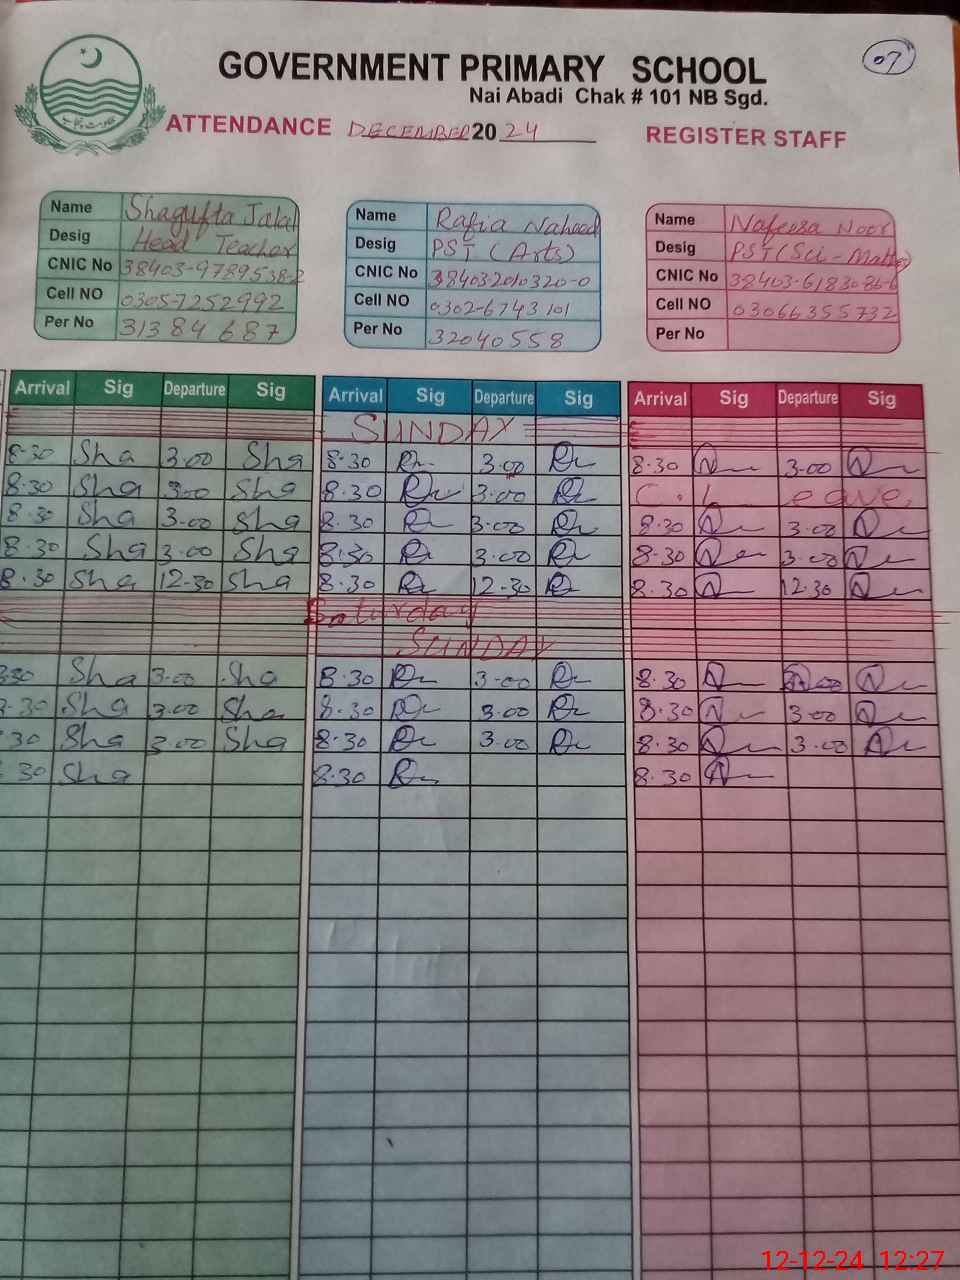 07
GOVERNMENT PRIMARY SCHOOL
Nai Abadi Chak # 101 NB Sgd.
ATTENDANCE DECEMBER 20 24 REGISTER STAFF
حکومت پنجاب
Name Shagufta Jalal
Desig Head Teacher
CNIC No 38403-9789538-2
Cell NO 0305-7252992
Per No 31384687
Name Rafia Naheed
Desig PST (Arts)
CNIC No 384032010320-0
Cell NO 0302-6743101
Per No 32040558
Name Nafeesa Noor
Desig PST (Sci-Math)
CNIC No 38403-6183086-6
Cell NO 03066355732
Per No
Arrival Sig Departure Sig Arrival Sig Departure Sig Arrival Sig Departure Sig
SUNDAY
8.30 Sha 3.00 Sha 8.30 3.00 8.30 3.00
8.30 Sha 3.00 Sha 8.30 3.00 C.L Leave
8.30 Sha 3.00 Sha 8.30 3.00 8.30 3.00
8.30 Sha 3.00 Sha 8.30 3.00 8.30 3.00
8.30 Sha 12-30 Sha 8.30 12-30 8.30 12.30
Saturday
SUNDAY
8.30 Sha 3.00 Sha 8.30 3.00 8.30
8.30 Sha 3.00 Sha 8.30 3.00 8.30 3.00
30 Sha 3.00 Sha 8.30 3.00 8.30 3.00
30 Sha 8.30 8.30
12-12-24 12:27